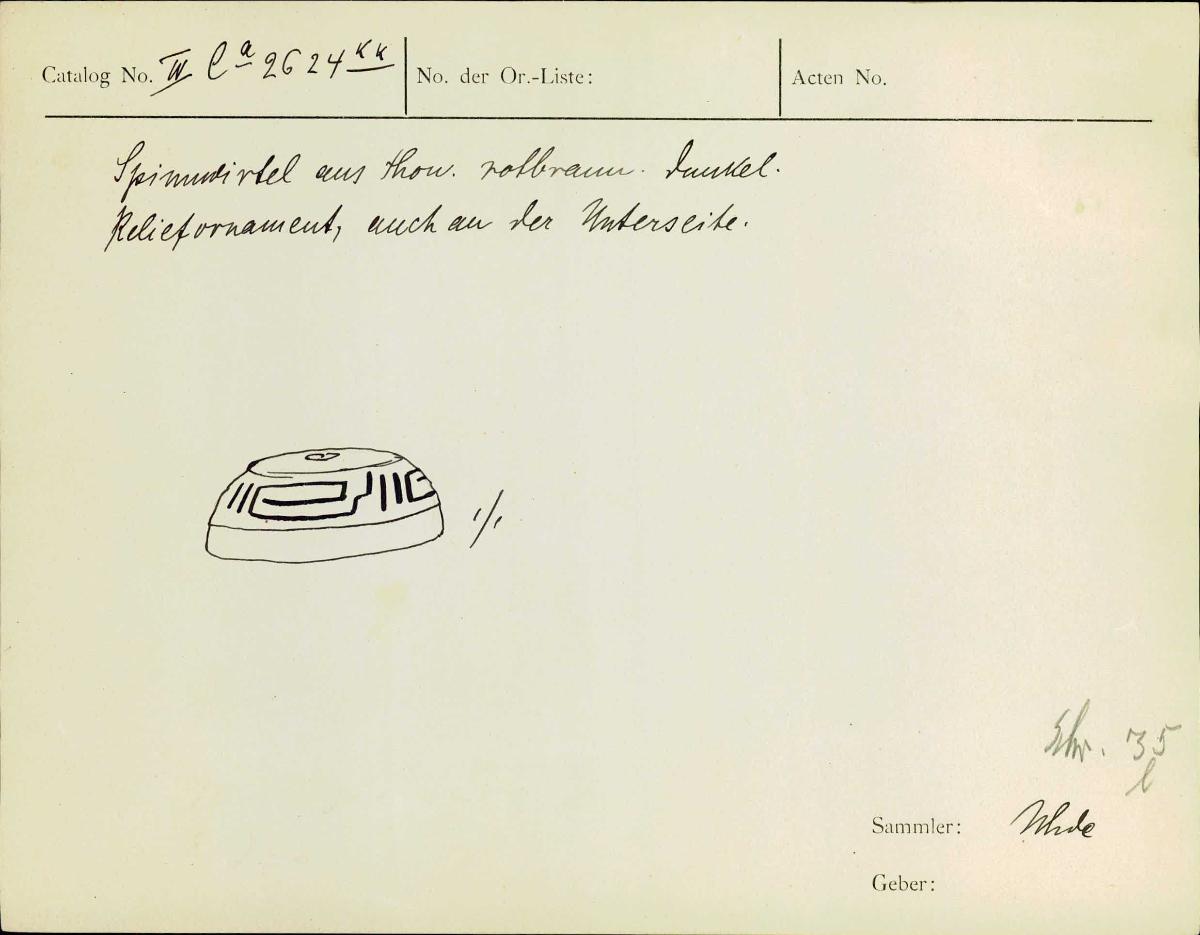 Catalog No. IV Ca 2624 kk
No. der Or.-Liste:
Acten No.
Spinnwirtel aus Thon. rotbraun. Dunkel.
Reliefornament, auch an der Unterseite.
1/1
35
l
Sammler: Uhde
Geber: